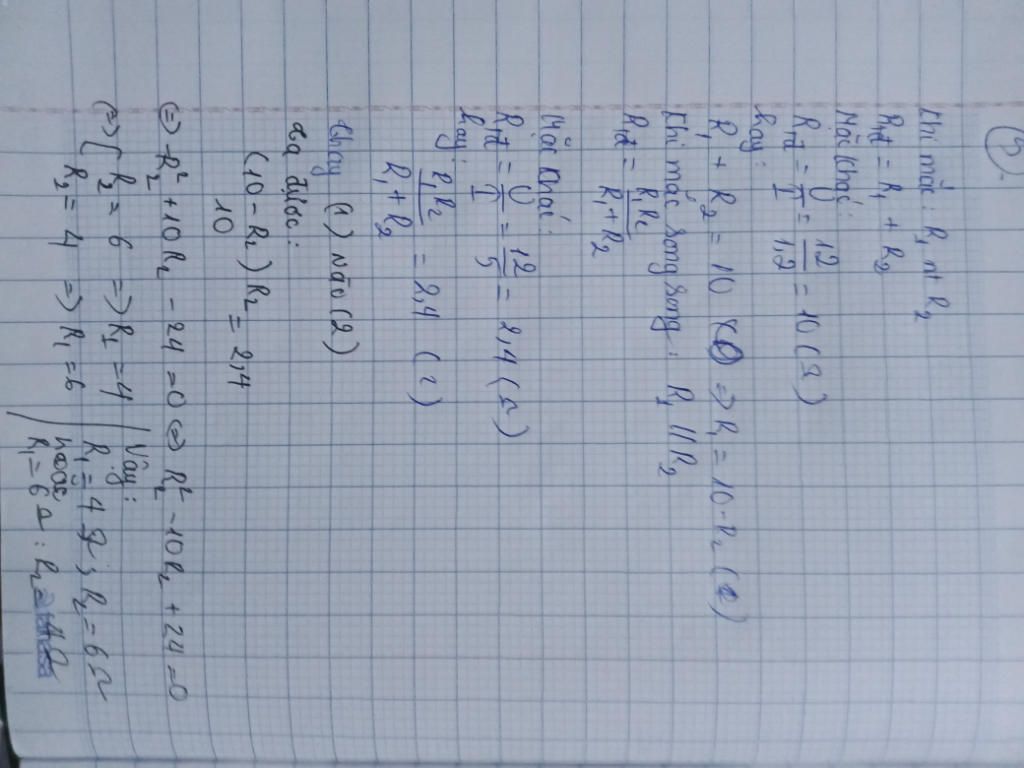 5.
Khi mắc: R₁ nt R₂
Rtđ = R₁ + R₂
Mặt khác:
Rtđ = U/I = 12/1,2 = 10 (Ω)
hay:
R₁ + R₂ = 10 (1) => R₁ = 10 - R₂ (2)
Khi mắc song song: R₁ // R₂
Rtđ = R₁R₂/R₁+R₂
Mặt khác:
Rtđ = U/I = 12/5 = 2,4 (Ω)
hay: R₁R₂/R₁+R₂ = 2,4 (2)
thay (1) vào (2)
ta được:
(10 - R₂) R₂/10 = 2,4
(=) -R₂² + 10R₂ - 24 = 0 (=) R₂² - 10R₂ + 24 = 0
(=) [ R₂ = 6 => R₁ = 4
R₂ = 4 => R₁ = 6
Vậy:
R₁ = 4 Ω; R₂ = 6Ω
hoặc
R₁ = 6Ω: R₂ = 4Ω